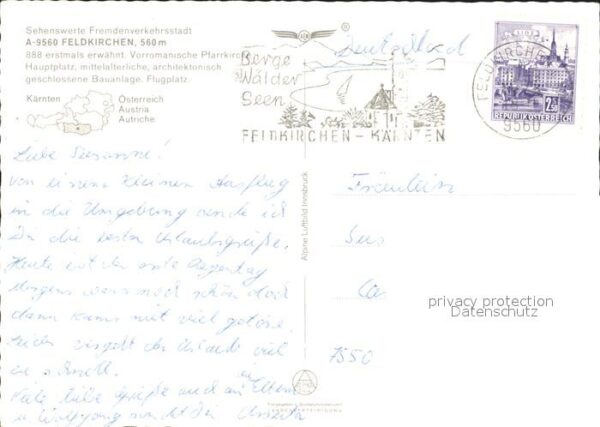 Sehenswerte Fremdenverkehrsstadt
A-9560 FELDKIRCHEN, 560 m
888 erstmals erwähnt. Vorromanische Pfarrkirche
Hauptplatz, mittelalterliche, architektonisch
geschlossene Bauanlage. Flugplatz.
Kärnten
Österreich
Austria
Autriche
Deutschland
Berge
Wälder
Seen
FELDKIRCHEN - KÄRNTEN
FELDKIRCHEN
9560
2.50
REPUBLIK ÖSTERREICH
Liebe Susanne!
Von einem kleinen Ausflug
in die Umgebung sende ich
Dir die besten Urlaubsgrüße.
Heute ist der erste Regentag
Morgens war's noch schön doch
dann kam's mit viel getöse.
Leider vergeht der Urlaub viel
zu schnell.
Viele liebe Grüße auch an die Eltern
u Wolfgang sendet Dir
Alpine Luftbild Innsbruck
Fräulein
Sus
7550
privacy protection
Datenschutz